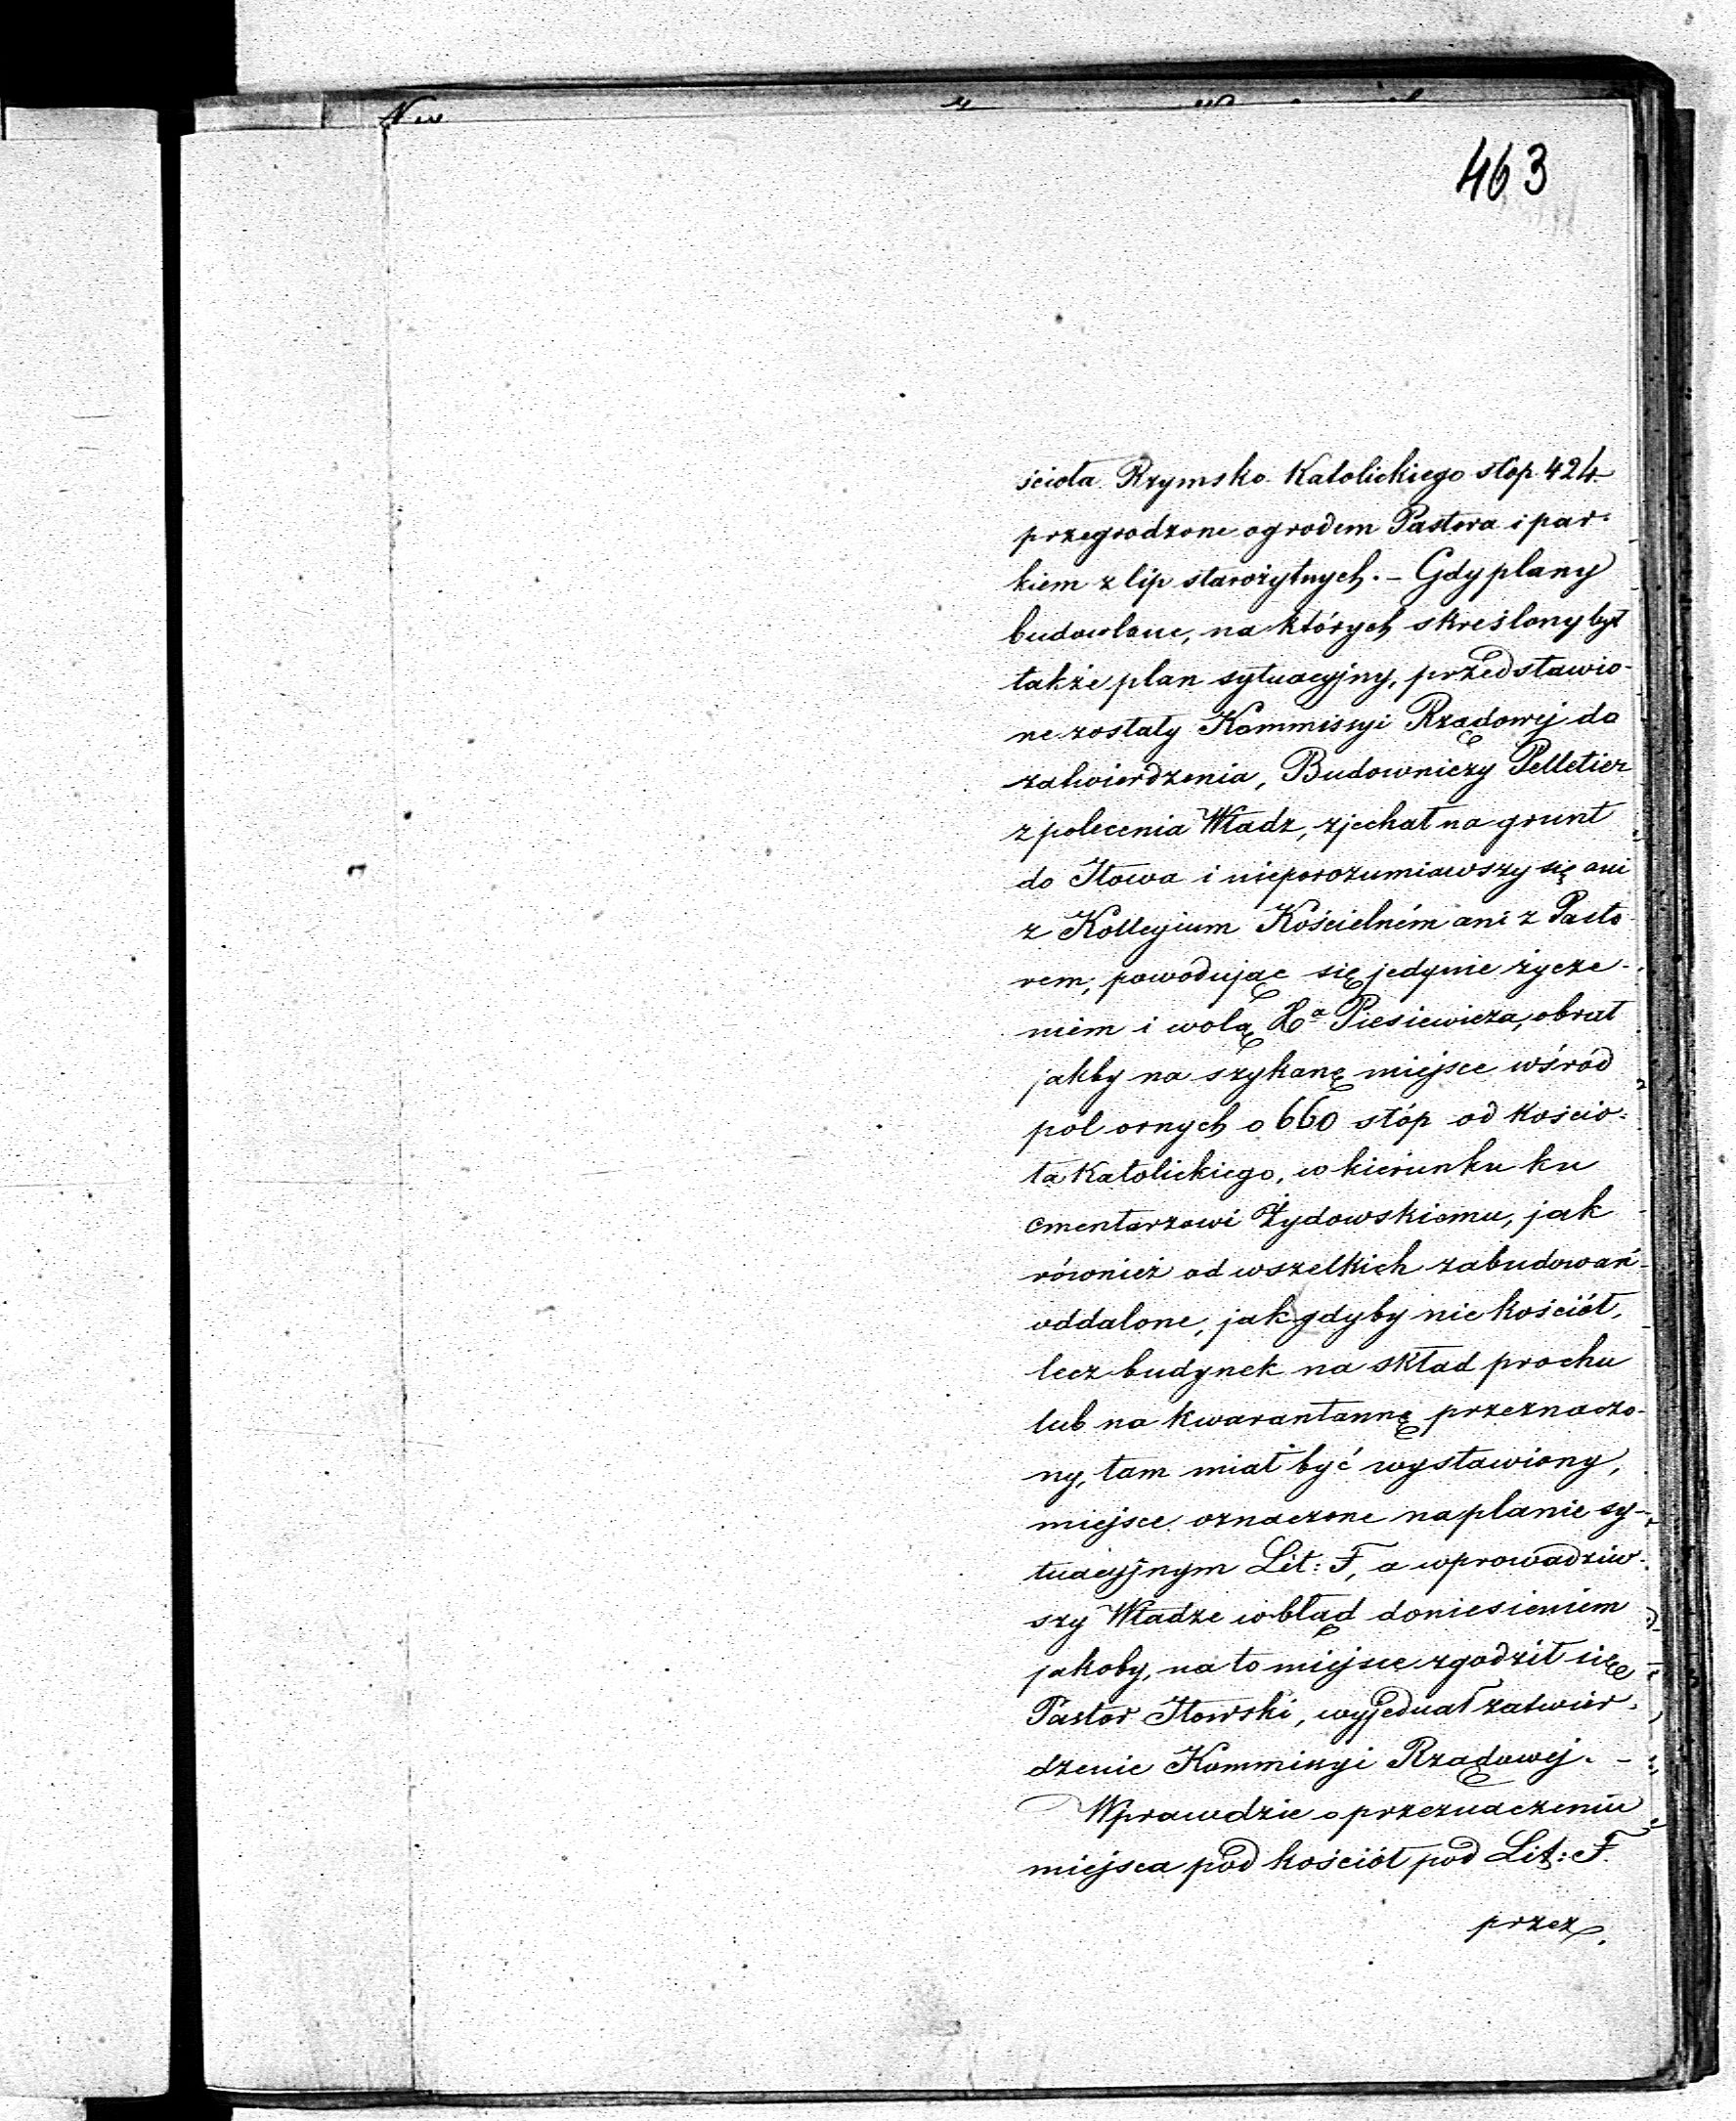 463
ścioła Rzymsko Katolickiego stop 424
przegrodzone ogrodem Pastora i par-
kiem z lip starożytnych. – Gdy plany
budowlane, na których skreślony był
także plan sytuacyjny, przedstawio-
ne zostały Kommissyi Rządowej do
zatwierdzenia, Budowniczy Pelletier
z polecenia Władz, zjechał na grunt
do Iłowa i nieporozumiawszy się ani
z Kollegium Kościelném ani z Pasto
rem, powodując się jedynie życze-
niem i wolą Xa Piesiewicza, obrał
jakby na szykanę miejsce wśród
pól ornych o 660 stóp od Kościo-
ła Katolickiego, w kierunku ku
cmentarzowi Żydowskiemu, jak
również od wszelkich zabudowań
oddalone, jak gdyby nie kościół,
lecz budynek na skład prochu
lub na kwarantannę przeznaczo-
ny, tam miał być wystawiony,
miejsce oznaczone na planie sy-
tuacyjnym Lit: F, a wprowadziw-
szy Władze w błąd doniesieniem
jakoby, na to miejsce zgodził się
Pastor Iłowski, wyjednał zatwier-
dzenie Kommissyi Rządowej. –
Wprawdzie o przeznaczeniu
miejsca pod kościół pod Lit: F.
przez